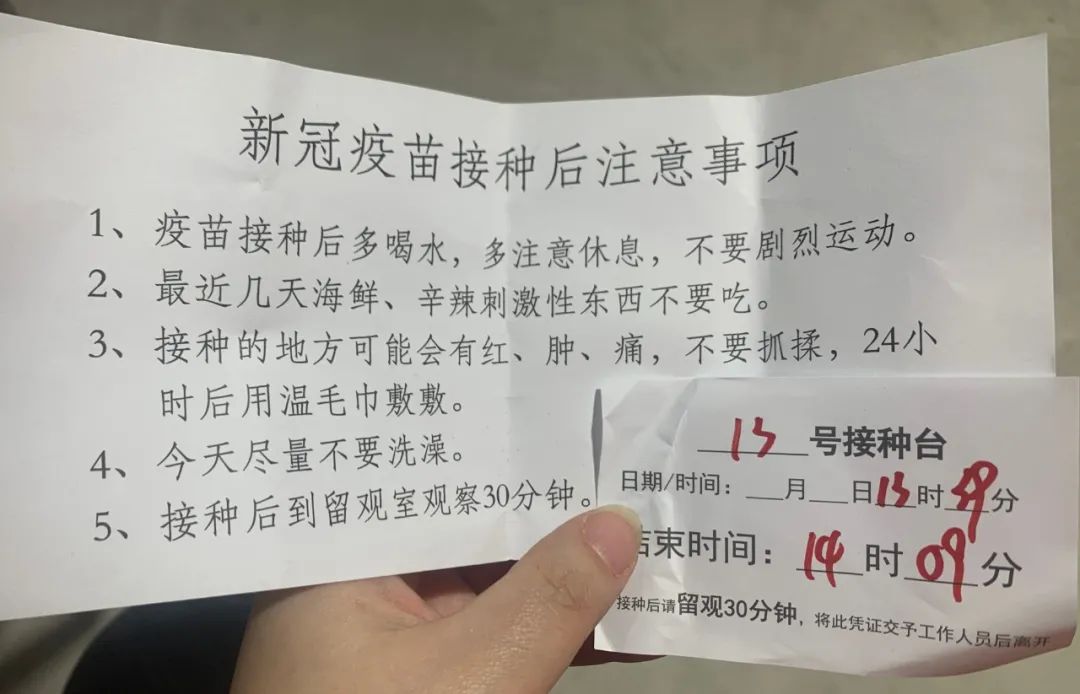 新冠疫苗接种后注意事项
1、疫苗接种后多喝水，多注意休息，不要剧烈运动。
2、最近几天海鲜、辛辣刺激性东西不要吃。
3、接种的地方可能会有红、肿、痛，不要抓揉，24小
时后用温毛巾敷敷。
4、今天尽量不要洗澡。
5、接种后到留观室观察30分钟。
13号接种台
日期/时间：___月___日13时39分
结束时间：14时09分
接种后请留观30分钟，将此凭证交予工作人员后离开